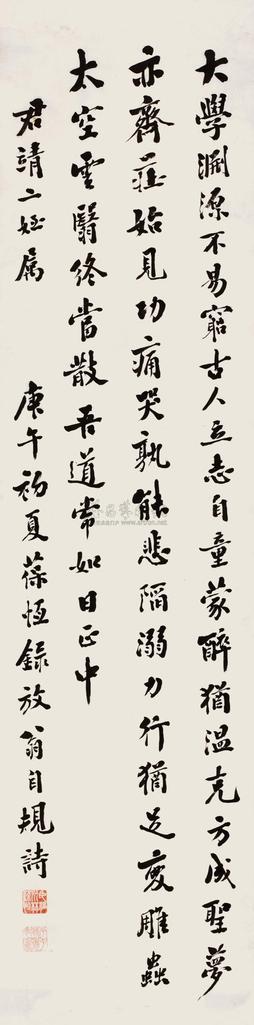 大學淵源不易窮古人立志自童蒙醉猶溫克方成聖夢
亦齊莊始見功痛哭孰能悲陷溺力行猶足變雕蟲
太空雲翳終當散吾道常如日正中
君靖二姪属
庚午初夏葆恆錄放翁自規詩